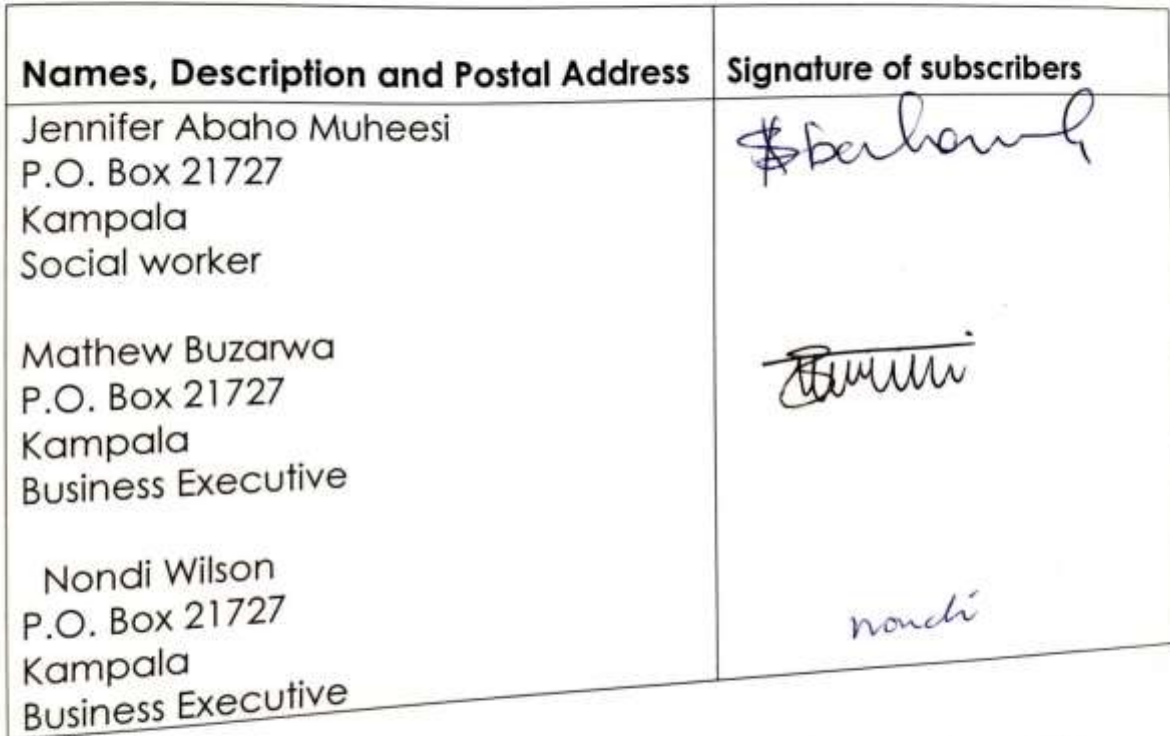 Names, Description and Postal Address
Signature of subscribers
Jennifer Abaho Muheesi
P.O. Box 21727
Kampala
Social worker
Mathew Buzarwa
P.O. Box 21727
Kampala
Business Executive
Nondi Wilson
P.O. Box 21727
Kampala
Business Executive
nondi